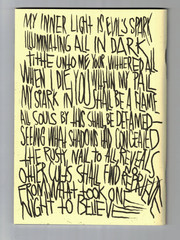 MY INNER LIGHT IS EVIL'S SPARK
ILLUMINATING ALL IN DARK
TITHE UNTO ME YOUR WITHERED ALL
WHEN I DIE, YOU WITHIN MY PALL
MY SPARK IN YOU SHALL BE A FLAME
ALL SOULS BY THIS SHALL BE DEFAMED—
SEEING WHAT SHADOWS HAD CONCEALED
THE RUSTY NAIL TO ALL REVEALS
OTHER SHALL FIND REPRIEVE
FROM WHAT TOOK ONE
NIGHT TO BELIEVE